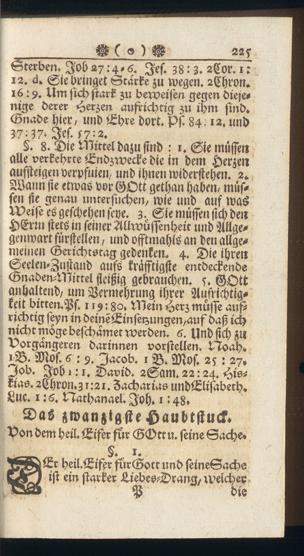 ❋ ( o ) ❋ 225
Sterben. Job 27:4-6. Jes. 38:3. 2Cor. 1:
12. d. Sie bringet Stärke zu wegen. 2Chron.
16:9. Um sich stark zu beweisen gegen dieje-
nige derer Herzen aufrichtig zu ihm sind.
Gnade hier, und Ehre dort. Ps. 84. 12. und
37:37. Jes. 57:2.
§. 8. Die Mittel dazu sind: 1. Sie müssen
alle verkehrte Endzwecke die in dem Herzen
aufsteigen verpfuien, und ihnen widerstehen. 2.
Wann sie etwas vor GOtt gethan haben, müs-
sen sie genau untersuchen, wie und auf was
Weise es geschehen seye. 3. Sie müssen sich den
HErrn stets in seiner Allwissenheit und Allge-
genwart fürstellen, und offtmahls an den allge-
meinen Gerichtstag gedenken. 4. Die ihren
Seelen-Zustand aufs kräfftigste entdeckende
Gnaden-Mittel fleißig gebrauchen. 5. GOtt
anhaltend, um Vermehrung ihrer Aufrichtig-
keit bitten. Ps. 119:80. Mein Herz müsse auf-
richtig seyn in deinē Einsetzungen, auf daß ich
nicht möge beschämet werden. 6. Und sich zu
Vorgängeren darinnen vorstellen. Noah.
1 B. Mos. 6:9. Jacob. 1 B. Mos. 25:27.
Job. Job 1:1. David. 2 Sam. 22:24. His-
kias. 2Chron. 31:21. Zacharias und Elisabeth.
Luc. 1:6. Nathanael. Joh. 1:48.
Das zwanzigste Haubtstuck.
Von dem heil. Eifer für GOtt u. seine Sache.
§. 1.
DEr heil. Eifer für Gott und seine Sache
ist ein starker Liebes-Drang, welcher
P die